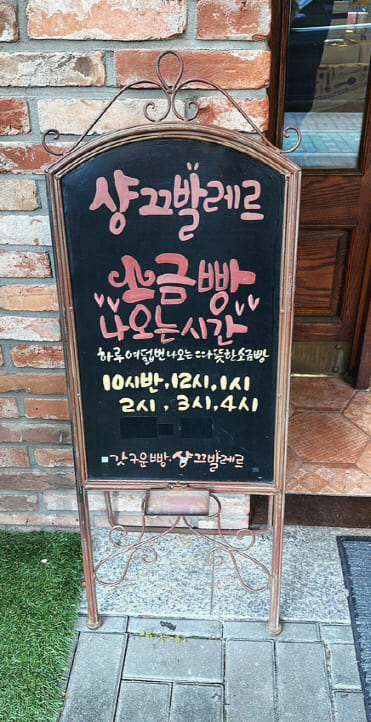 샹끄발레르
소금빵
나오는시간
하루여덟번나오는 따뜻한소금빵
10시반, 12시, 1시
2시, 3시, 4시
갓구운빵·샹끄발레르